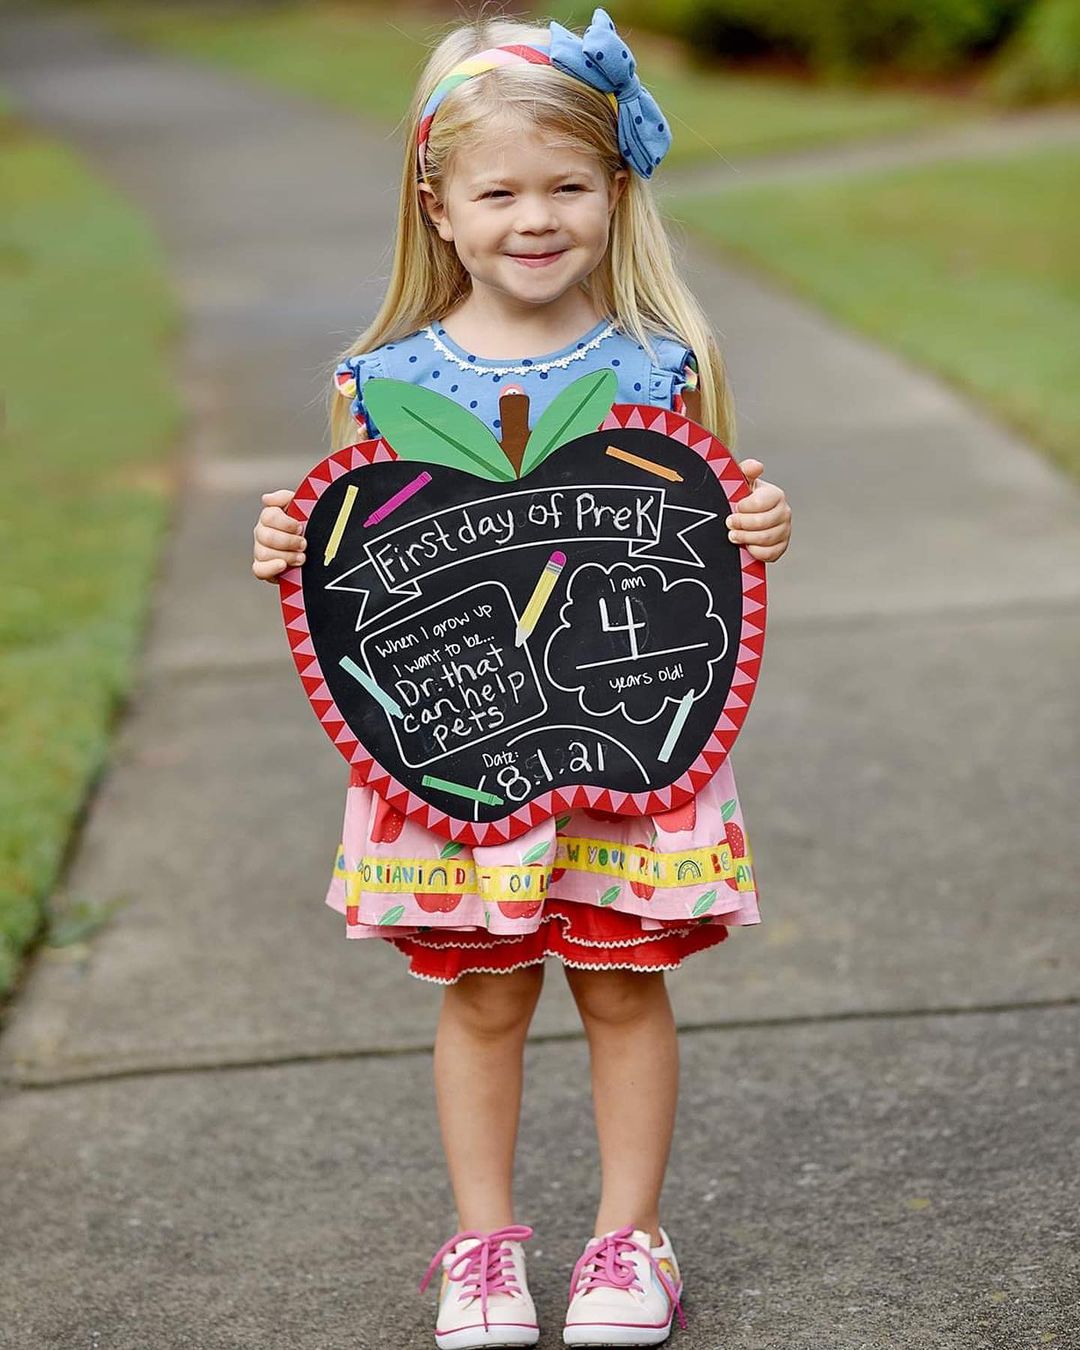 First day of PreK
When I grow up
I want to be...
Dr. that
can help
pets
I am
4
years old!
Date:
8.1.21